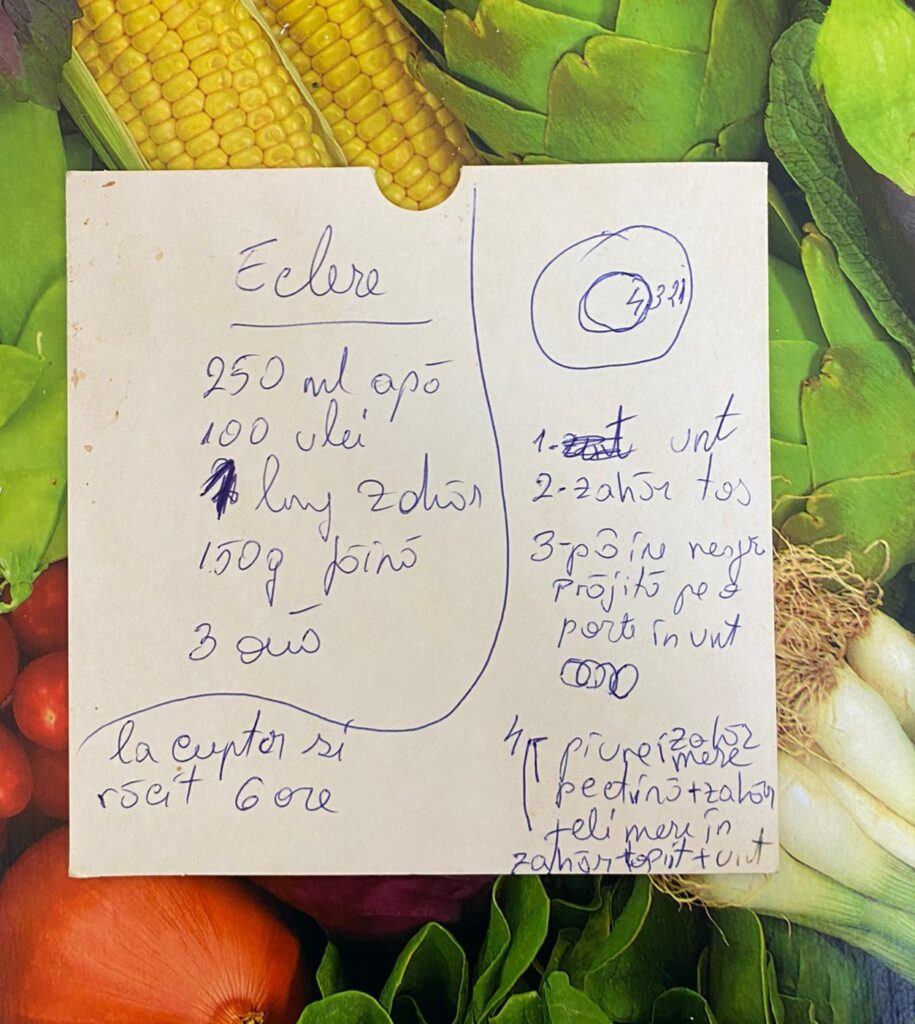 Eclere
250 ml apă
100 ulei
1 ling zahăr
150g făină
3 ouă
la cuptor si
răcit 6 ore
4 3 2 1
1- unt
2-zahăr tos
3-pâine neagr
prăjită pe o
parte în unt
4 piure zahăr
mere
pectină+zahăr
felii mere în
zahăr topit+unt